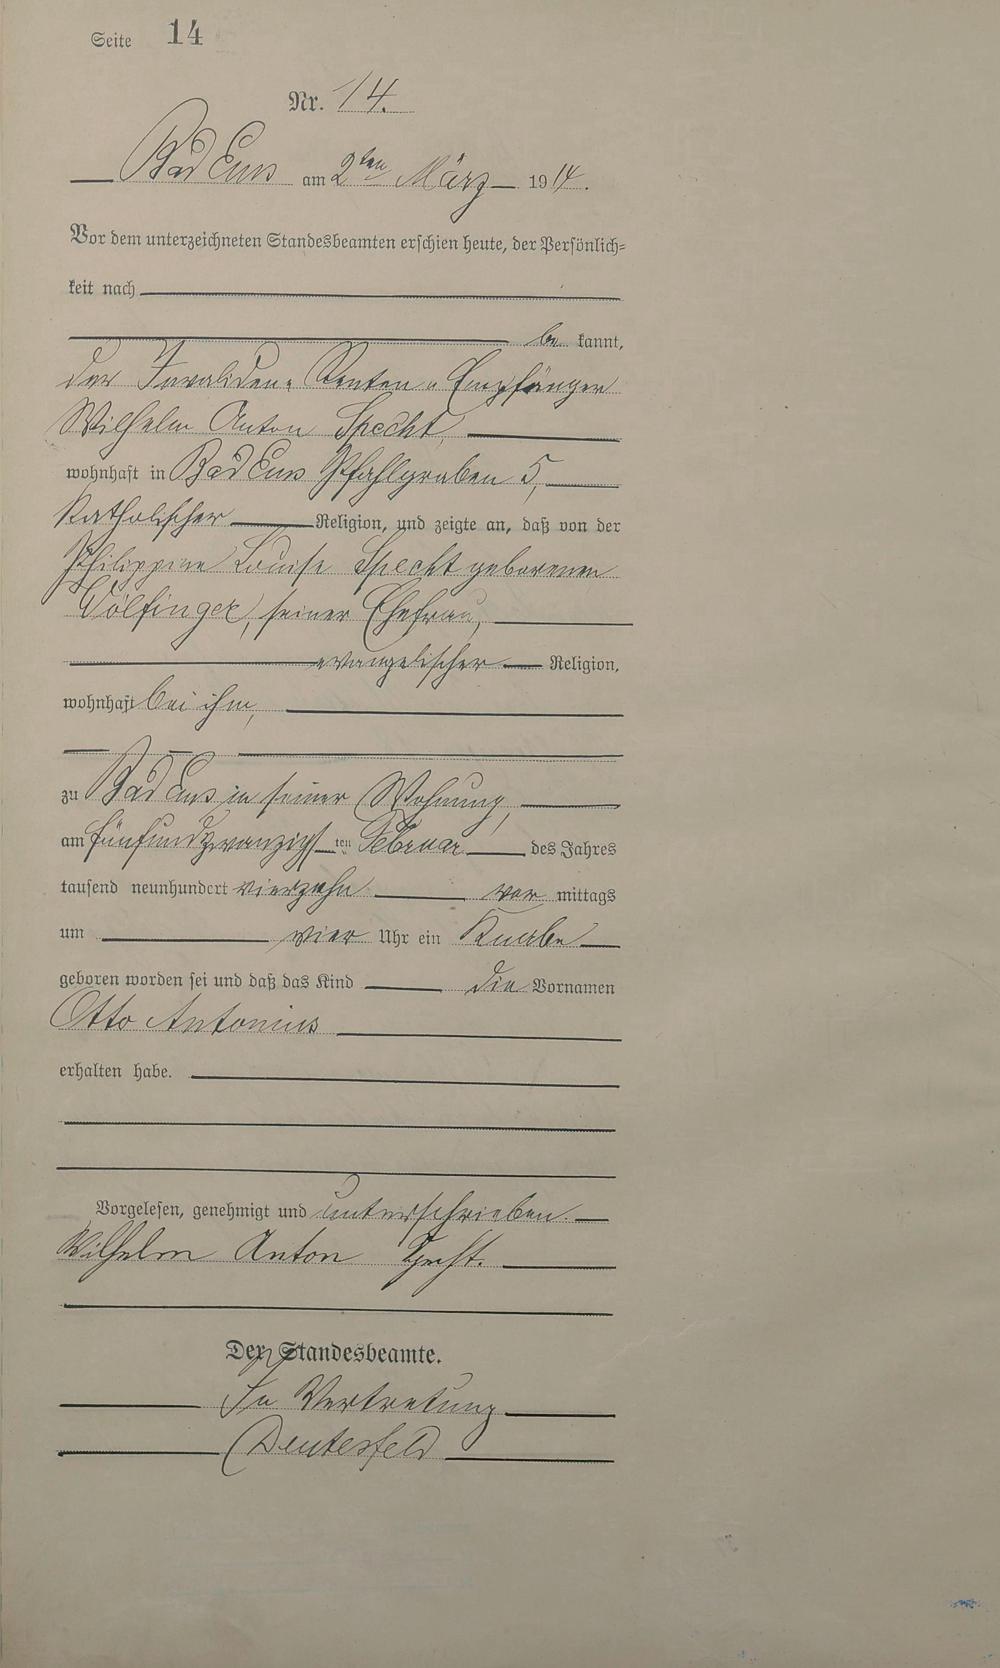 Seite 14
Nr. 14.
Bad Ems am 2ten März 1914.
Vor dem unterzeichneten Standesbeamten erschien heute, der Persönlich=
keit nach
be kannt,
der Invaliden-Renten-Empfänger
Wilhelm Anton Specht,
wohnhaft in Bad Ems Pfahlgraben 5,
katholischer Religion, und zeigte an, daß von der
Philippine Louise Specht geborenen
Völfinger, seiner Ehefrau,
evangelischer Religion,
wohnhaft bei ihm,
zu Bad Ems in seiner Wohnung,
am fünfundzwanzigsten Februar des Jahres
tausend neunhundert vierzehn vor mittags
um vier Uhr ein Knabe
geboren worden sei und daß das Kind die Vornamen
Otto Antonius
erhalten habe.
Vorgelesen, genehmigt und unterschrieben.
Wilhelm Anton Specht.
Der Standesbeamte.
In Vertretung